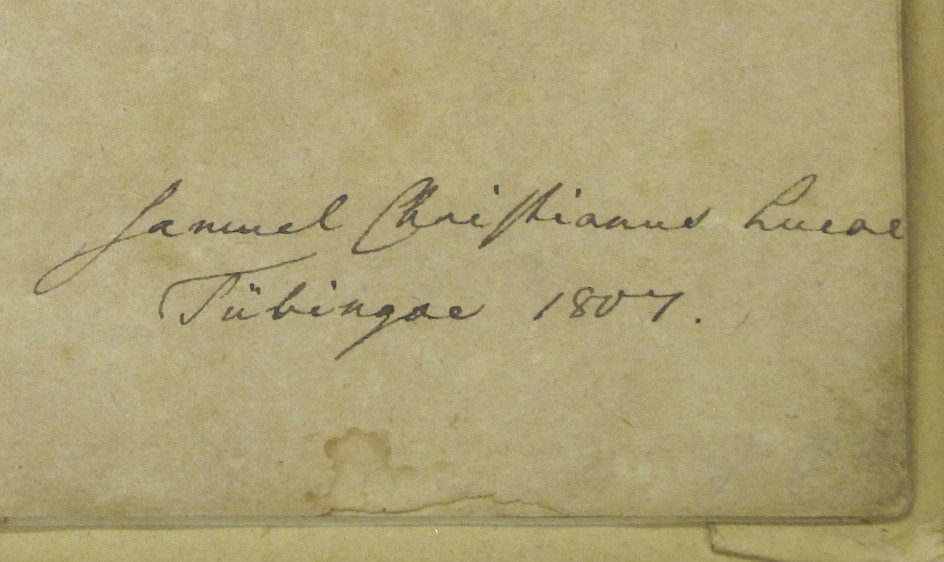 Samuel Christianus Lucae
Tübingae 1807.